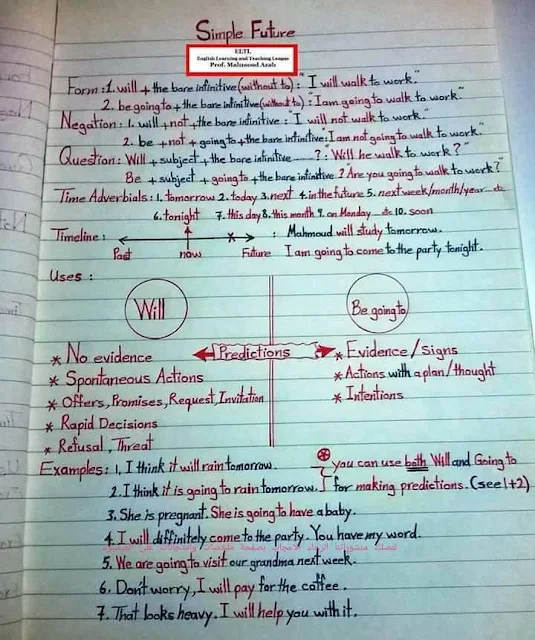 Simple Future
ELTL
English Learning and Teaching League
Prof. Mahmoud Azab
Form: 1. will + the bare infinitive (without to): "I will walk to work."
2. be going to + the bare infinitive (without to): "I am going to walk to work."
Negation: 1. will + not + the bare infinitive: "I will not walk to work."
2. be + not + going to + the bare infinitive: "I am not going to walk to work."
Question: Will + subject + the bare infinitive ......? "Will he walk to work?"
Be + subject + going to + the bare infinitive? "Are you going to walk to work?"
Time Adverbials: 1. tomorrow 2. today 3. next 4. in the future 5. next week/month/year etc
6. tonight 7. this day 8. this month 9. on Monday etc 10. soon
Timeline: Past now Future : Mahmoud will study tomorrow.
I am going to come to the party tonight.
Uses:
Will Be going to
* No evidence Predictions * Evidence/Signs
* Spontaneous Actions * Actions with a plan/thought
* Offers, Promises, Request, Invitation * Intentions
* Rapid Decisions
* Refusal, Threat
Examples: 1. I think it will rain tomorrow. you can use both Will and Going to
2. I think it is going to rain tomorrow. for making predictions. (see 1+2)
3. She is pregnant. She is going to have a baby.
4. I will diffinitely come to the party. You have my word.
5. We are going to visit our grandma next week.
6. Don't worry, I will pay for the coffee.
7. That looks heavy. I will help you with it.